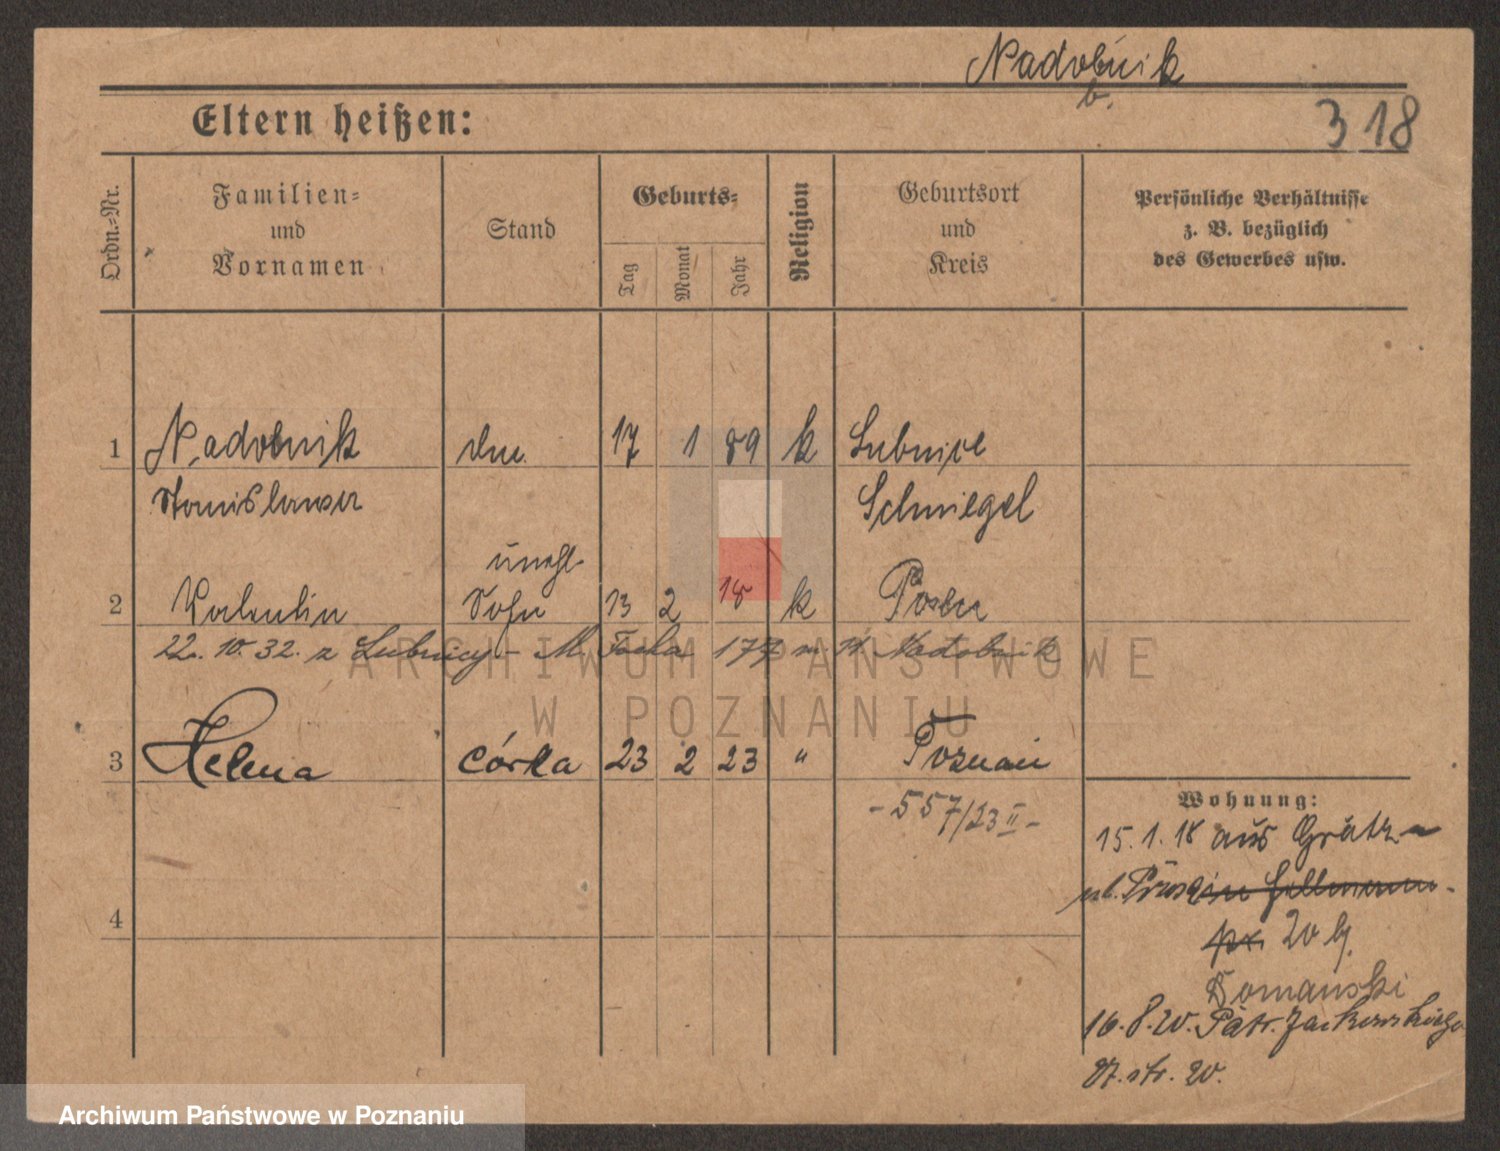 Nadobnik
b.
Eltern heißen:
318
Ordn.-Nr.
Familien-
und
Vornamen
Stand
Geburts-
Tag
Monat
Jahr
Religion
Geburtsort
und
Kreis
Persönliche Verhältnisse
z. B. bezüglich
des Gewerbes usw.
1 Nadobnik 17 1 89 k Lubnice
Stanislawa Schmiegel
unehl.
2 Valentin Sohn 13 2 18 k Posen
22. 10. 32. z Lubnicy - M. Focha 177 m 14 Nadobnik
3 Helena córka 23 2 23 " Poznań
- 557/23 II -
4
Wohnung:
15. 1. 18 aus Grätz
20 bj.
Domański
16. 8. 20. Patr. Jackowskiego
27. str. 20.
ARCHIWUM PAŃSTWOWE
W POZNANIU
Archiwum Państwowe w Poznaniu